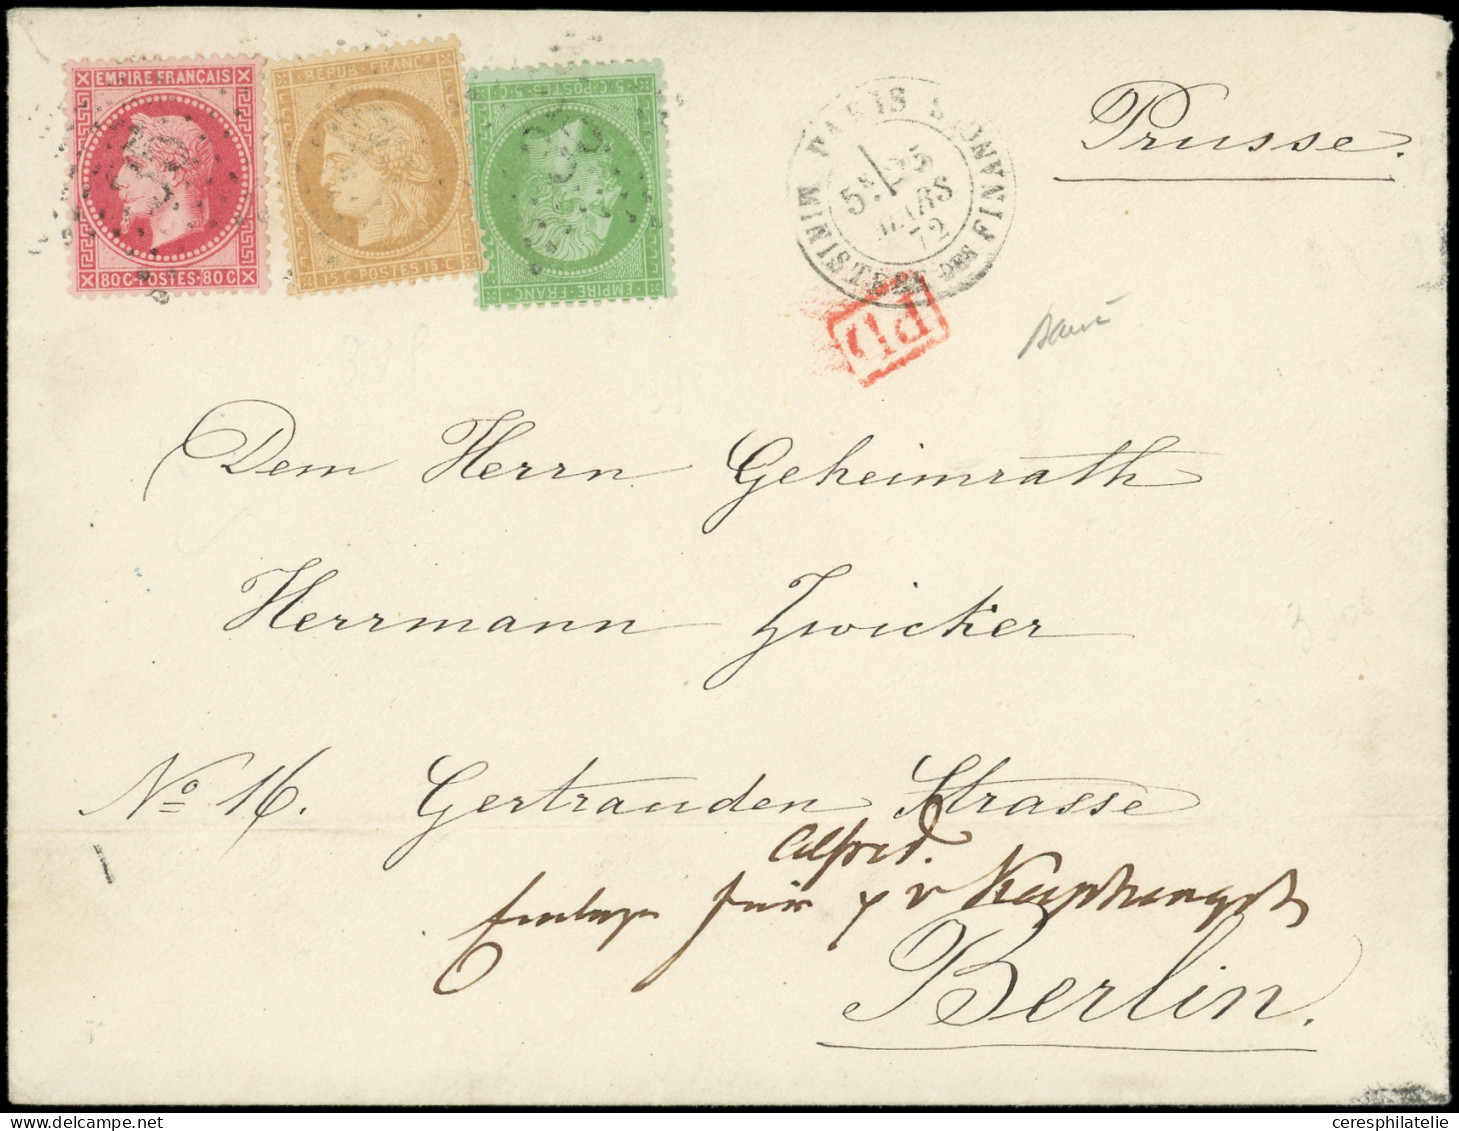 EMPIRE FRANÇAIS
80C-POSTES-80C
REPUB. FRANC.
15 C. POSTES 15 C.
5 C. POSTES 5 C.
EMPIRE FRANC.
PARIS
MINISTERE DES FINANCES
5E 25
MARS
72
PD
Prusse.
Dem Herrn Geheimrath
Herrmann Zwicker
No 16. Gertrauden Strasse
Alfred.
Einlage für
Berlin.
ceresphilatelie.com